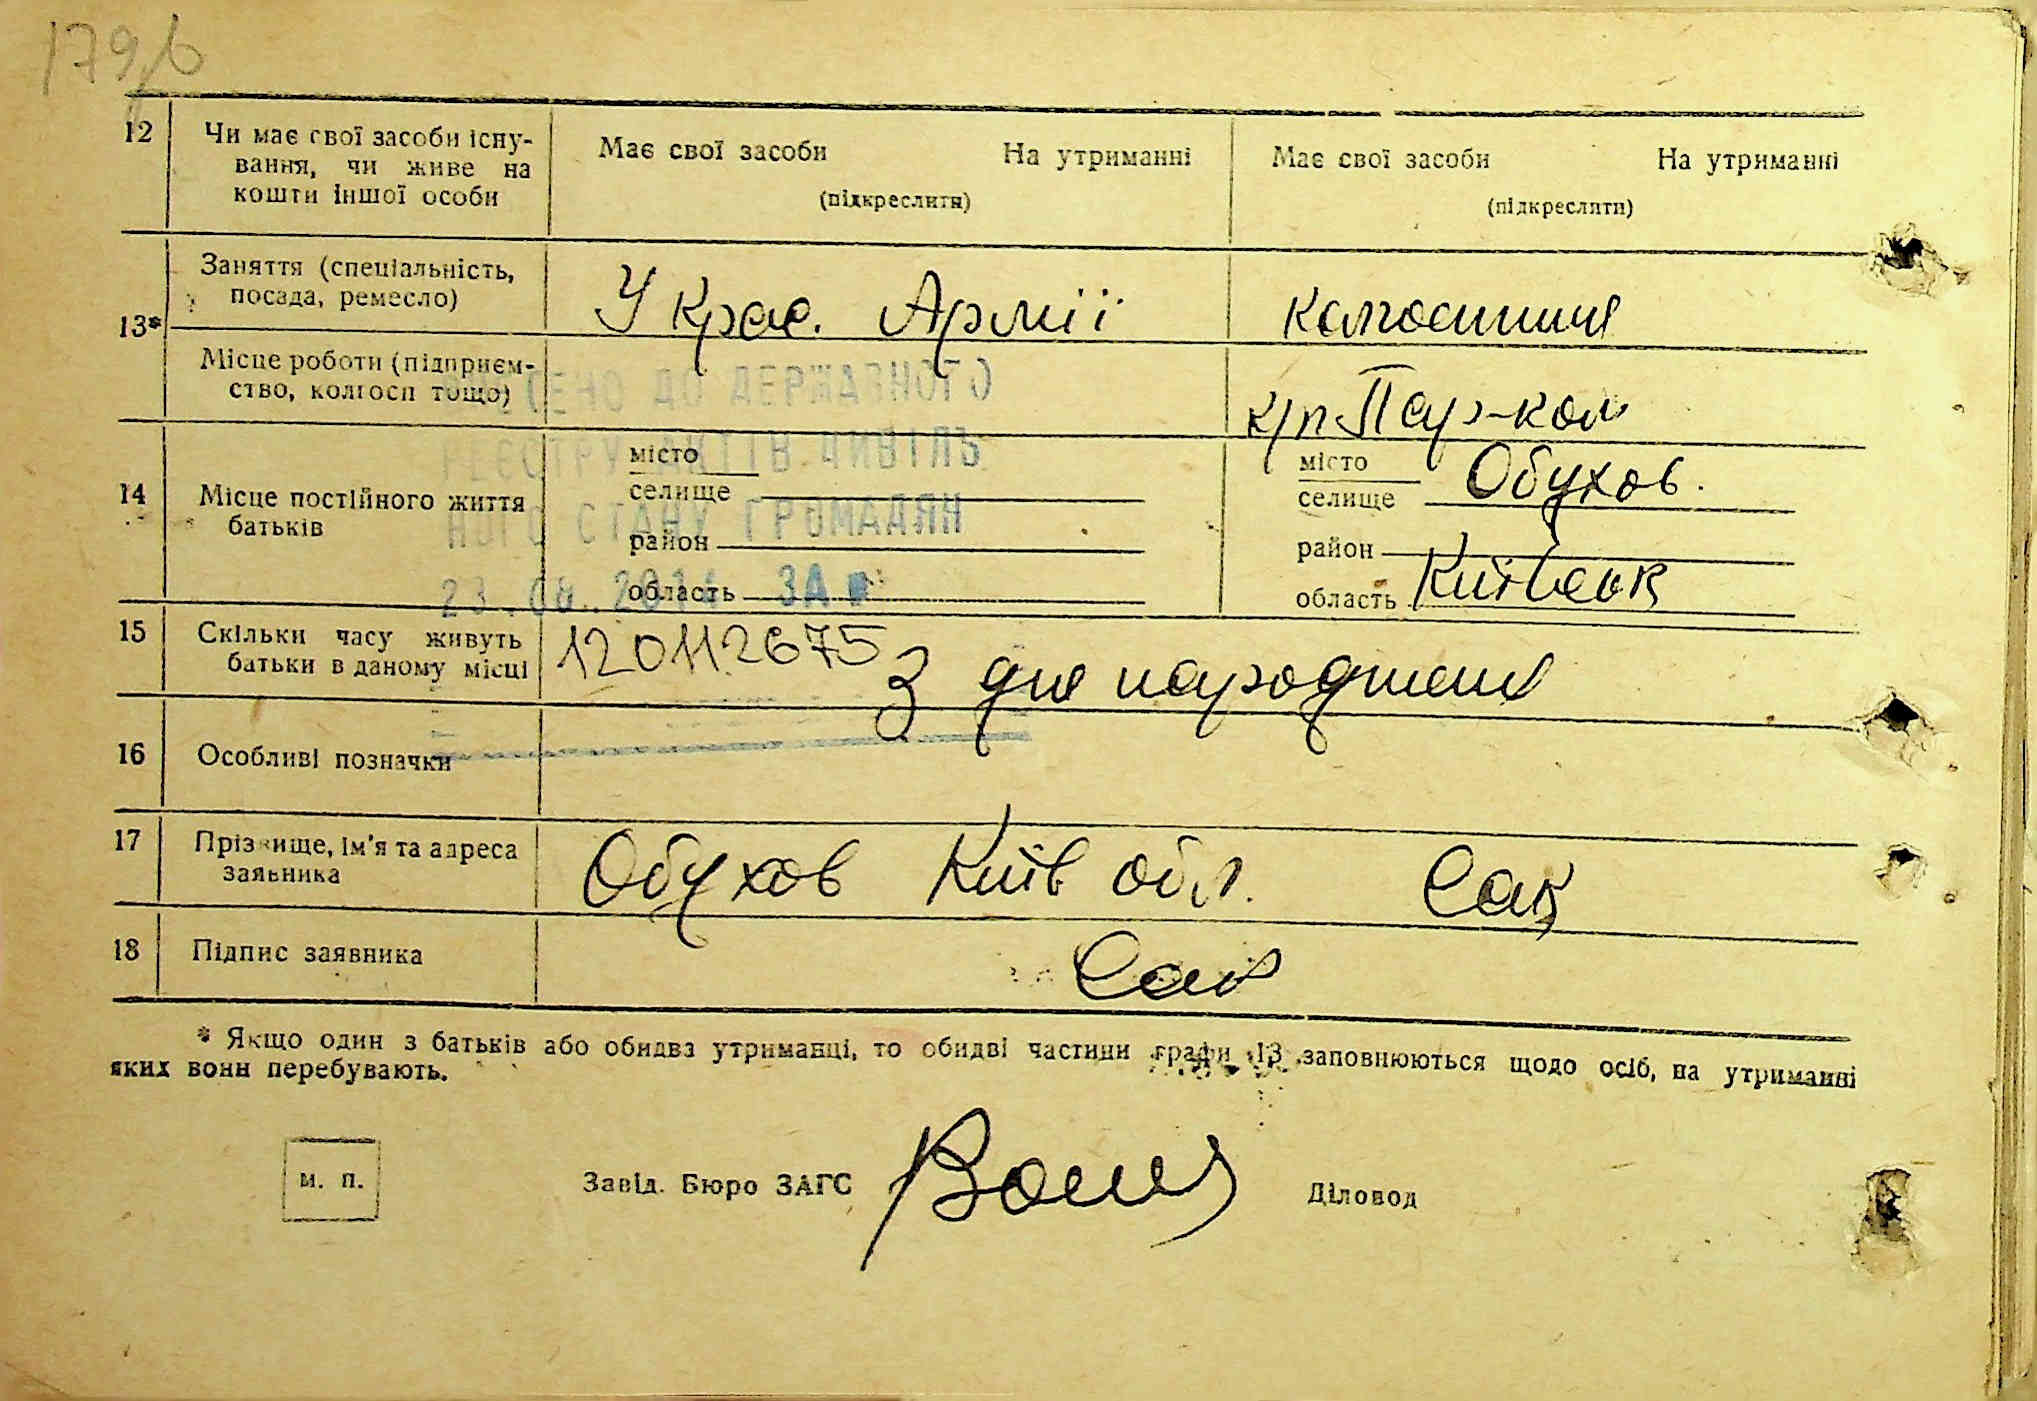 179
12 Чи має свої засоби існу-
вання, чи живе на
кошти іншої особи
Має свої засоби На утриманні
(підкреслити)
Має свої засоби На утриманні
(підкреслити)
13*
Заняття (спеціальність,
посада, ремесло)
У Крас. Армії
колгоспниця
Місце роботи (підприєм-
ство, колгосп тощо)
14 Місце постійного життя
батьків
місто
селище
район
область
місто
селище Обухов.
район
область Київськ
ВНЕСЕНО ДО ДЕРЖАВНОГО
РЕЄСТРУ АКТІВ ЦИВІЛЬ
НОГО СТАНУ ГРОМАДЯН
2014 ЗА
15 Скільки часу живуть
батьки в даному місці
120112675
З дня народження
16 Особливі позначки
17 Прізвище, ім'я та адреса
заявника
Обухов Київ обл. Сак
18 Підпис заявника
Сак
* Якщо один з батьків або обидва утриманці, то обидві частини графи 13 заповнюються щодо осіб, на утриманні
яких вони перебувають.
м. п.
Завід. Бюро ЗАГС
Діловод